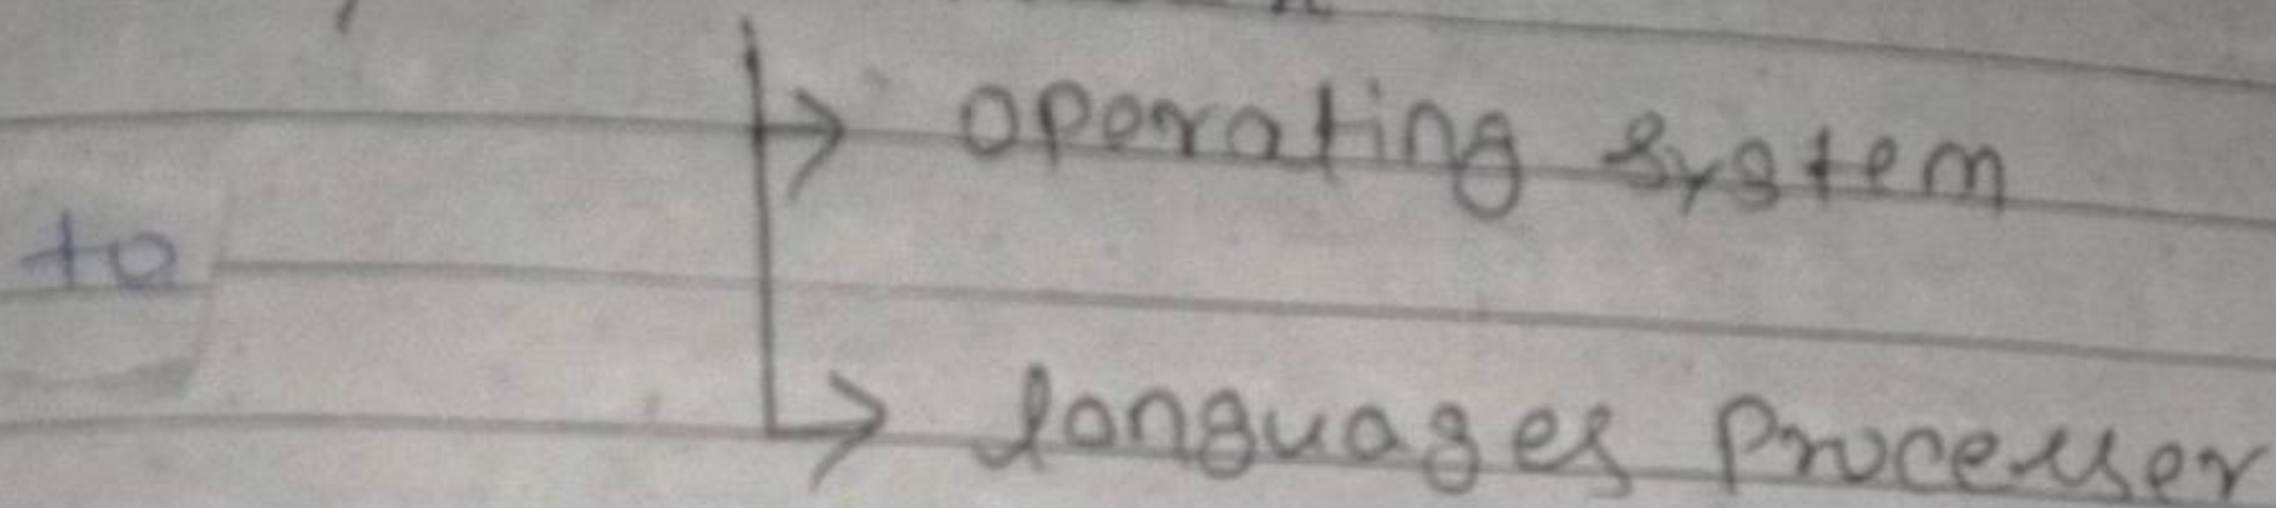 → operating system
to
→ languages processer